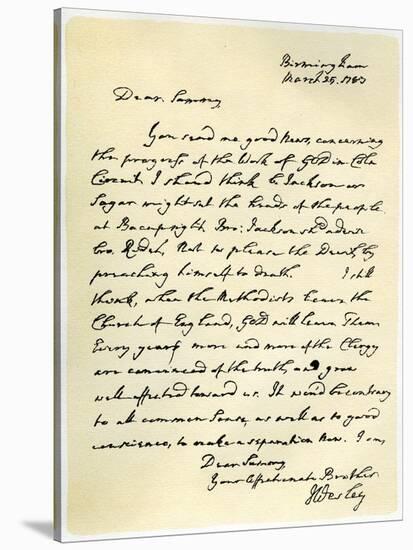 Birmingham
March 25. 1783
Dear Sammy,
You send me good News, concerning
the progress of the Work of GOD in Coln
Circuit, I should think Br Jackson or
Sagar might set the heads of the people
at Bacup right Bro: Jackson shd advise
bro. Not to please the Devil, by
preaching himself to death. I still
think, when the Methodists leave the
Church of England, GOD will leave Them.
Every year more and more of the Clergy
are convinced of the truth, and grow
well-affected toward us. It wou'd be contrary
to all common Sense, as well as to good
conscience, to make a separation now. I am,
Dear Sammy,
Your Affectionate Brother
JWesley